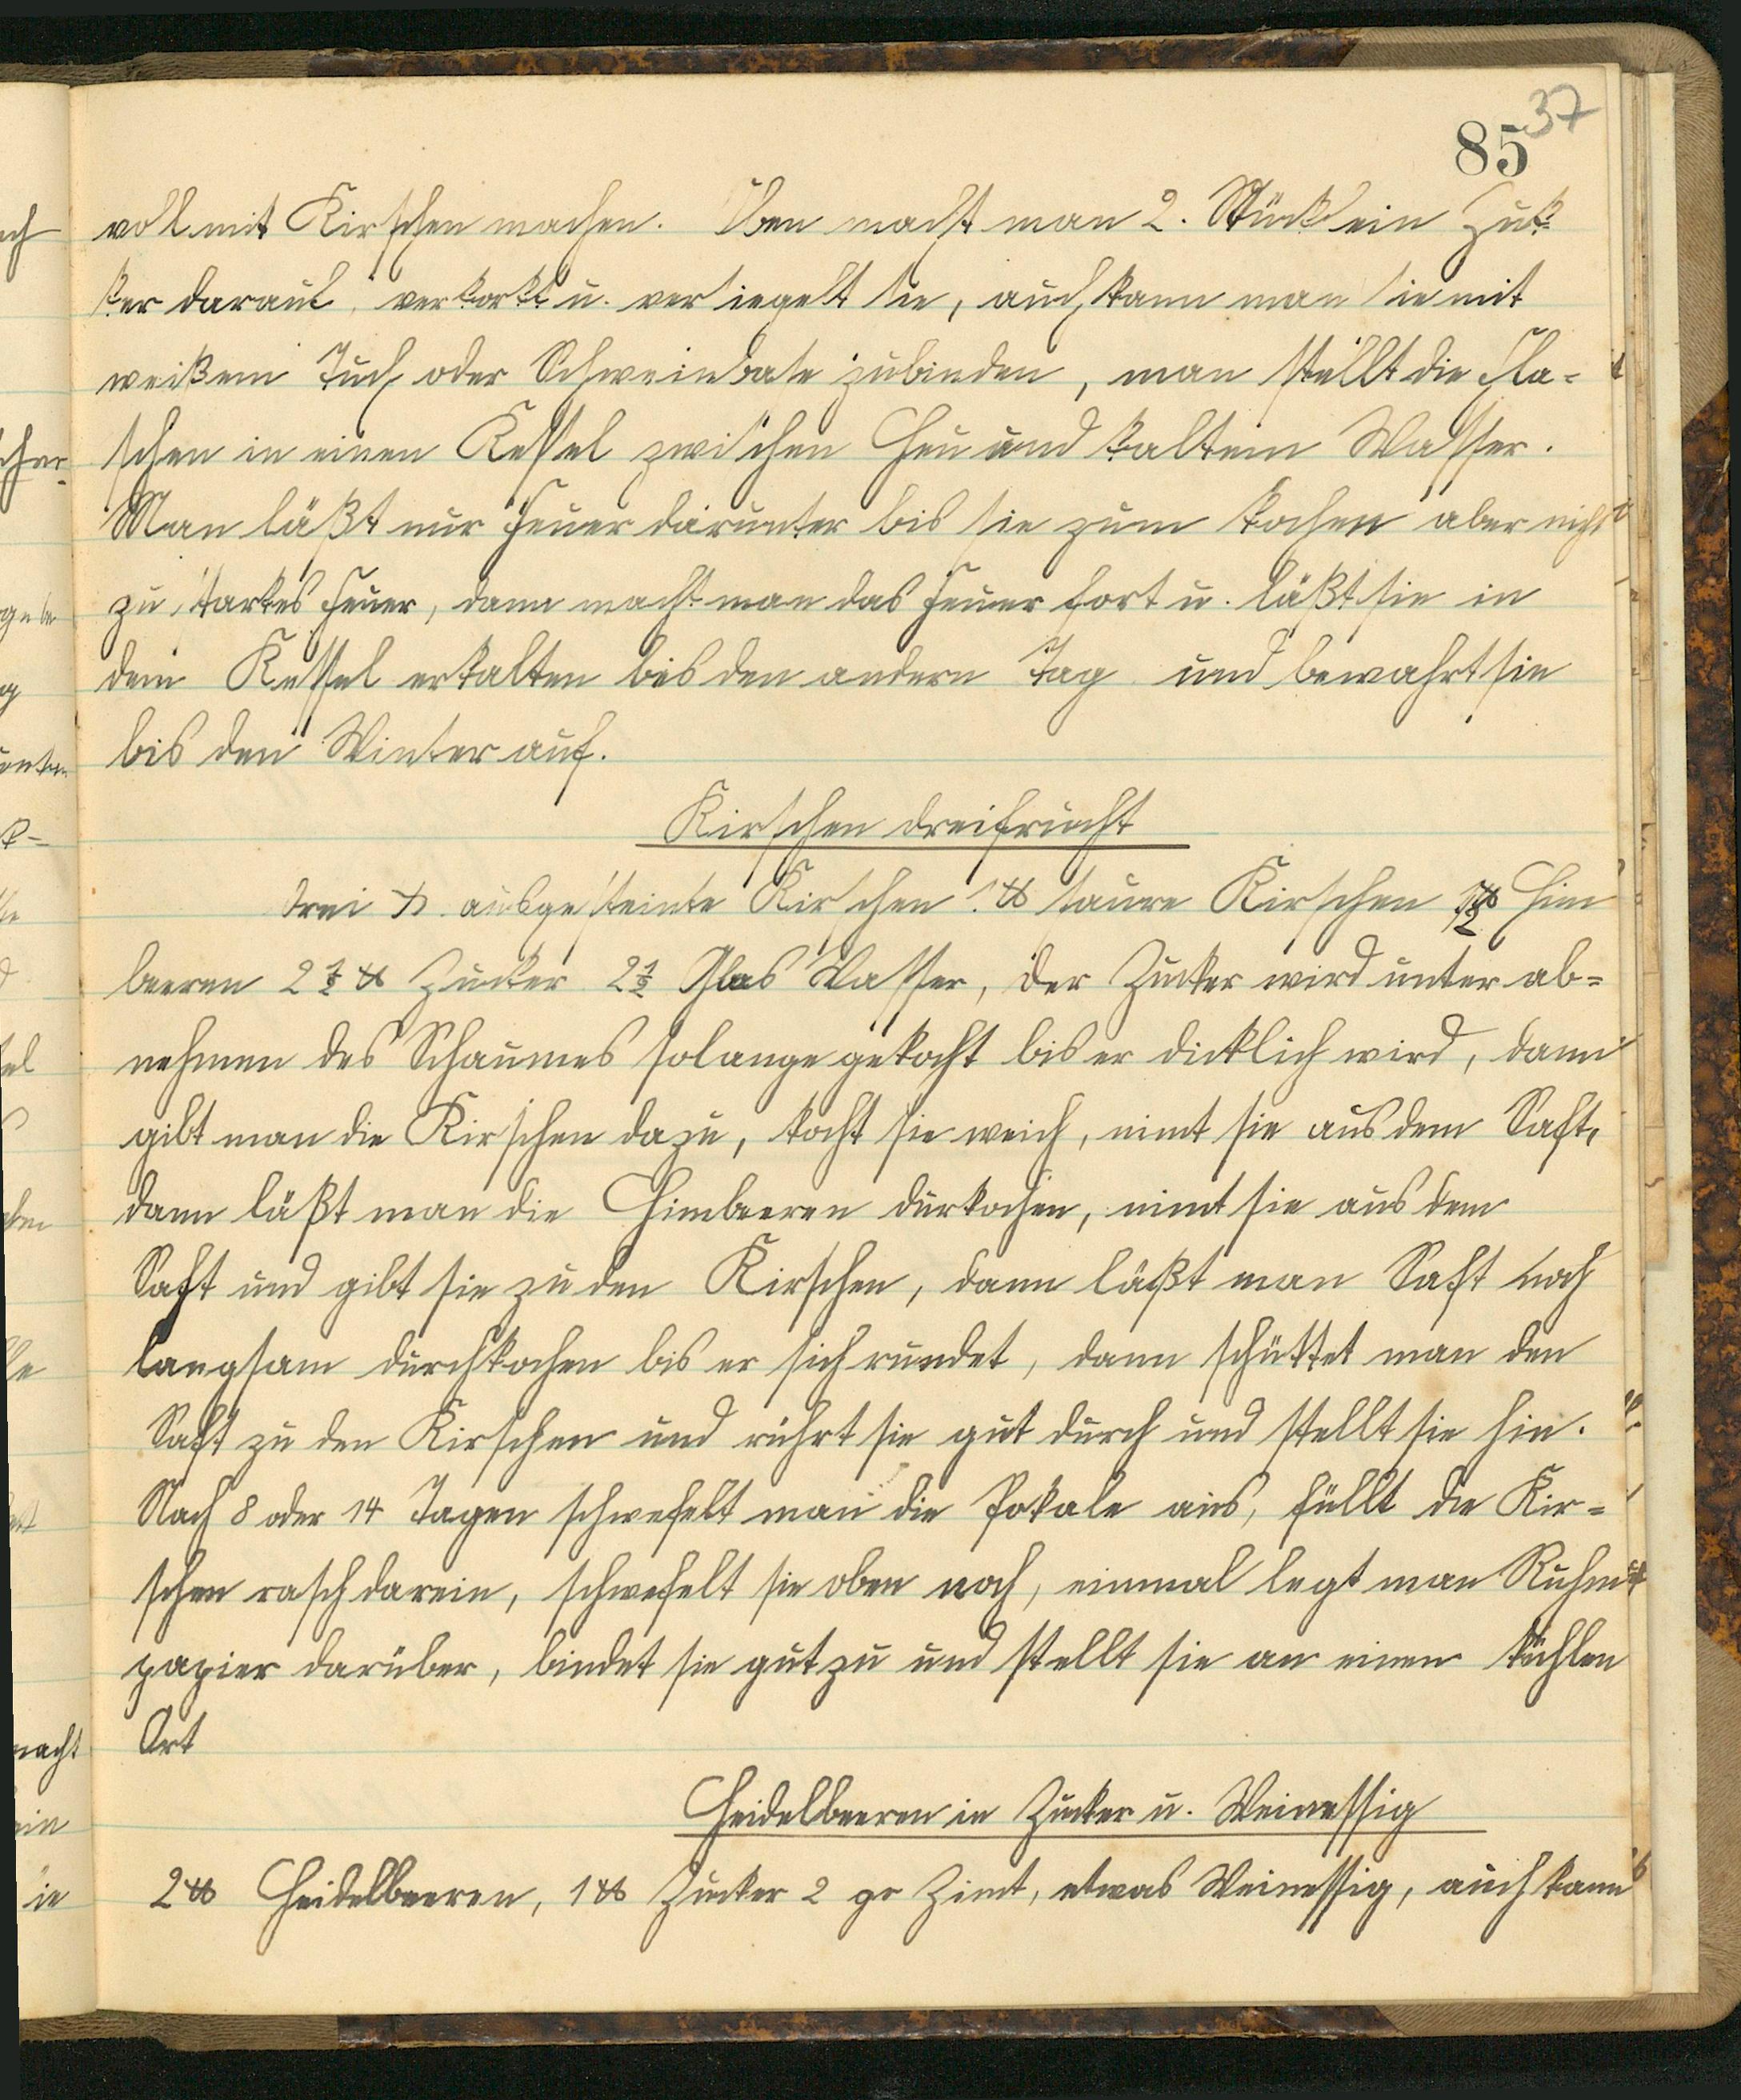 37
85
voll mit Kirschen machen. Oben macht man 2. Stücklein Zuk
ker darauf, verkorkt u. versiegelt sie, auch kann man sie mit
weißem Tuch oder Schweinsblase zubinden, man stellt die Fla-
schen in einen Kessel zwischen Heu und kaltem Wasser.
Man läßt nur Feuer darunter bis sie zum kochen aber nicht
zu starkes Feuer, dann macht man das Feuer fort u. läßt sie in
dem Kessel erkalten bis den andern Tag und bewahrt sie
bis den Winter auf.
Kirschen dreifrucht
drei ℔ ausgesteinte Kirschen 1 ℔ saure Kirschen ℔ Him
beeren 2½ ℔ Zucker 2½ Glas Wasser, der Zucker wird unter ab-
nehmen des Schaumes solange gekocht bis er dicklich wird, dann
gibt man die Kirschen dazu, kocht sie weich, nimt sie aus dem Saft,
dann läßt man die Himbeeren durkochen, nimt sie aus dem
Saft und gibt sie zu den Kirschen, dann läßt man Saft noch
langsam durchkochen bis er sich rundet, dann schüttet man den
Saft zu den Kirschen und rührt sie gut durch und stellt sie hin.
Nach 8 oder 14 Tagen schwefelt man die Pokale aus, füllt die Kir-
schen rasch darein, schwefelt sie oben noch, einmal legt man
papier darüber, bindet sie gut zu und stellt sie an einen kühlen
Ort
Heidelbeeren in Zucker u. Weinessig
2 ℔ Heidelbeeren, 1 ℔ Zucker 2 gr Zimt, etwas Weinessig, auch kann